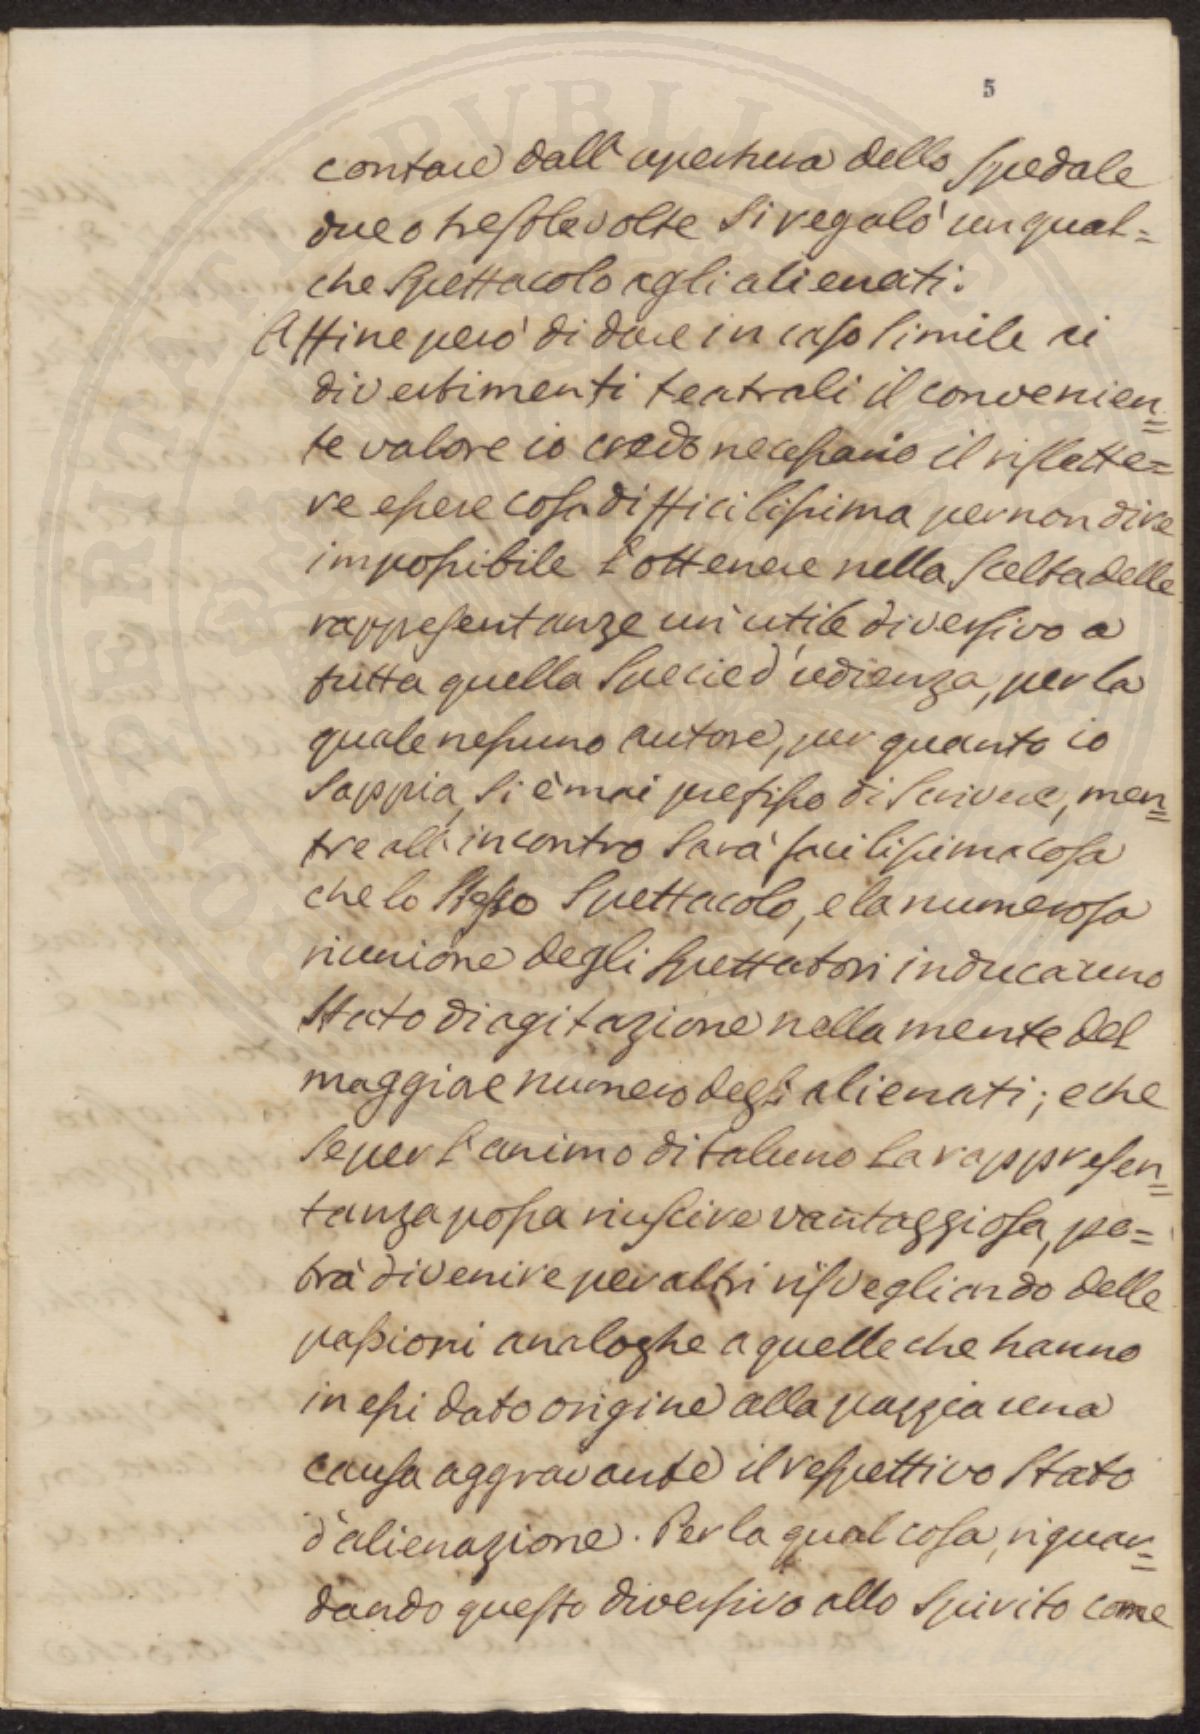 5
contare dall'apertura dello Spedale
due o tre sole volte si regalò un qual=
che Spettacolo agli alienati.
Affine però di dare in caso simile ai
divertimenti teatrali il convenien=
te valore io credo necessario il riflette=
re essere cosa difficilissima per non dire
impossibile l'ottenere nella scelta delle
rappresentanze un'utile diversivo a
tutta quella Specie d'udienza, per la
quale nessuno autore, per quanto io
sappia, si è mai prefisso di scrivere, men=
tre all'incontro sarà facilissima cosa
che lo stesso Spettacolo, e la numerosa
riunione degli Spettatori induca uno
stato di agitazione nella mente del
maggiore numero degli alienati; e che
se per l'animo di taluno la rappresen=
tanza possa riuscire vantaggiosa, po=
trà divenire per altri risvegliando delle
passioni analoghe a quelle che hanno
in essi dato origine alla pazzia una
causa aggravante il respettivo stato
d'alienazione. Per la qual cosa, riguar=
dando questo diversivo allo Spirito come